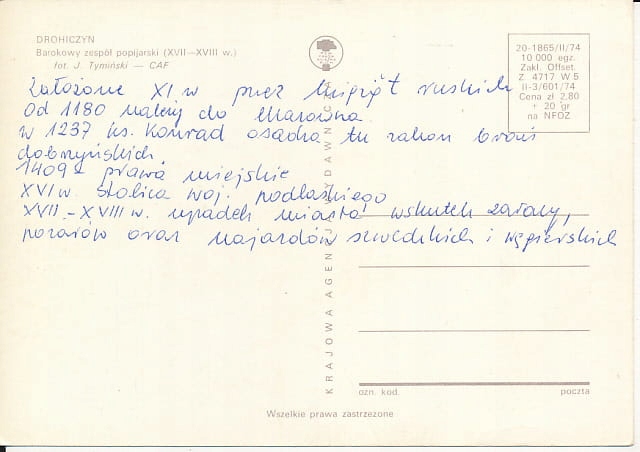 DROHICZYN
Barokowy zespół popijarski (XVII—XVIII w.)
fot. J. Tymiński — CAF
20-1865/II/74
10 000 egz.
Zakł. Offset.
Z. 4717 W 5
II-3/601/74
Cena zł 2,80
+ 20 gr
na NFOZ
Założone XI w przez książąt ruskich
Od 1180 należy do Mazowsza
w 1237 ks. Konrad osadza tu zakon braci
dobrzyńskich.
1409 z prawa miejskie
XVI w. stolica woj. podlaskiego
XVII.-XVIII w. upadek miasta wskutek zarazy,
pożarów oraz najazdów szwedzkich i węgierskich
KRAJOWA AGENCJA WYDAWNICZA
ozn. kod.
poczta
Wszelkie prawa zastrzeżone